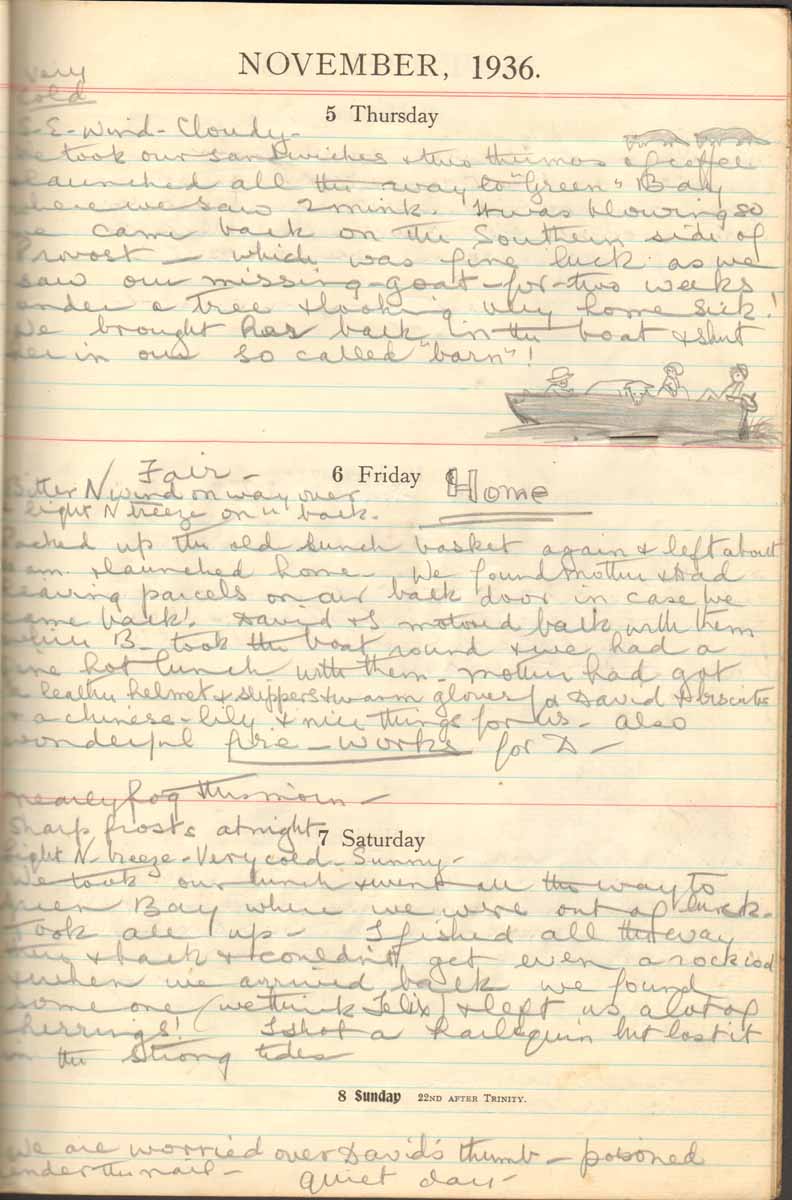 NOVEMBER, 1936.
Very
Cold
5 Thursday
S-E-Wind-Cloudy-
We took our sandwiches & two thermos of coffee
launched all the way to "Green" Bay
where we saw 2 mink. It was blowing so
we came back on the Southern side of
Provost — which was fine luck as we
saw our missing-goat-for-two weeks
under a tree & looking very home sick!
We brought her back in the boat & shut
her in our so called "barn"!
6 Friday
Fair -
Home
Bitter N wind on way over
light N breeze on " back.
Packed up the old lunch basket again & left about
am. & launched home. We found Mother & Dad
leaving parcels on our back door in case we
came back! David & I motored back with them
while B- took the boat round & we had a
fine hot lunch with them - Mother had got
a leather helmet & slippers & warm gloves for David & biscuits
& a chinese-lily & nice things for us - also
wonderful fire-works for D -
nearly fog this morn -
Sharp frosts at night
7 Saturday
Light N-breeze-Very cold-Sunny-
We took our lunch & went all the way to
Green Bay where we were out of luck-
Took all up - I fished all the way
there & back & couldn't get even a rock cod
& when we arrived back we found
some one (we think Felix) & left us a lot of
herrings! I shot a harlequin but lost it
in the strong tides
8 Sunday 22ND AFTER TRINITY.
We are worried over David's thumb - poisoned
under the nail - quiet day -